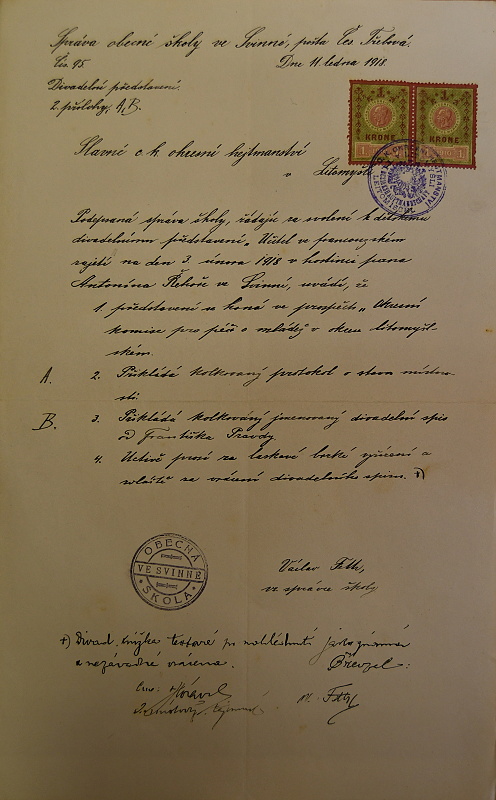 Správa obecné školy ve Svinné, pošta Čes. Třebová.
Čís. 95
Dne 11. ledna 1918.
Divadelní představení.
2 přílohy, A, B.
1 1
KRONE KRONE
1 1
Slavné c. k. okresní hejtmanství
v Litomyšli
Podepsaná správa školy, žádajíc za svolení k dětskému
divadelnímu představení „Učitel ve francouzském
zajetí na den 3. února 1918 v hostinci pana
Antonína Řehoře ve Svinné, uvádí, že
1. představení se koná ve prospěch „Okresní
komise pro péči o mládež v okresu litomyšl-
ském.
A. 2. Přikládá kolkovaný protokol o stavu místno-
sti
B. 3. Přikládá kolkovaný jmenovaný divadelní spis
od Františka Pravdy
4. Uctivě prosí za laskavé brzké vyřízení a
zvláště za vrácení divadelního spisu. +)
OBECNÁ
VE SVINNÉ
ŠKOLA
Václav
správce školy
+) Divad. knížka po nahlédnutí
a nezávadné vrácena.